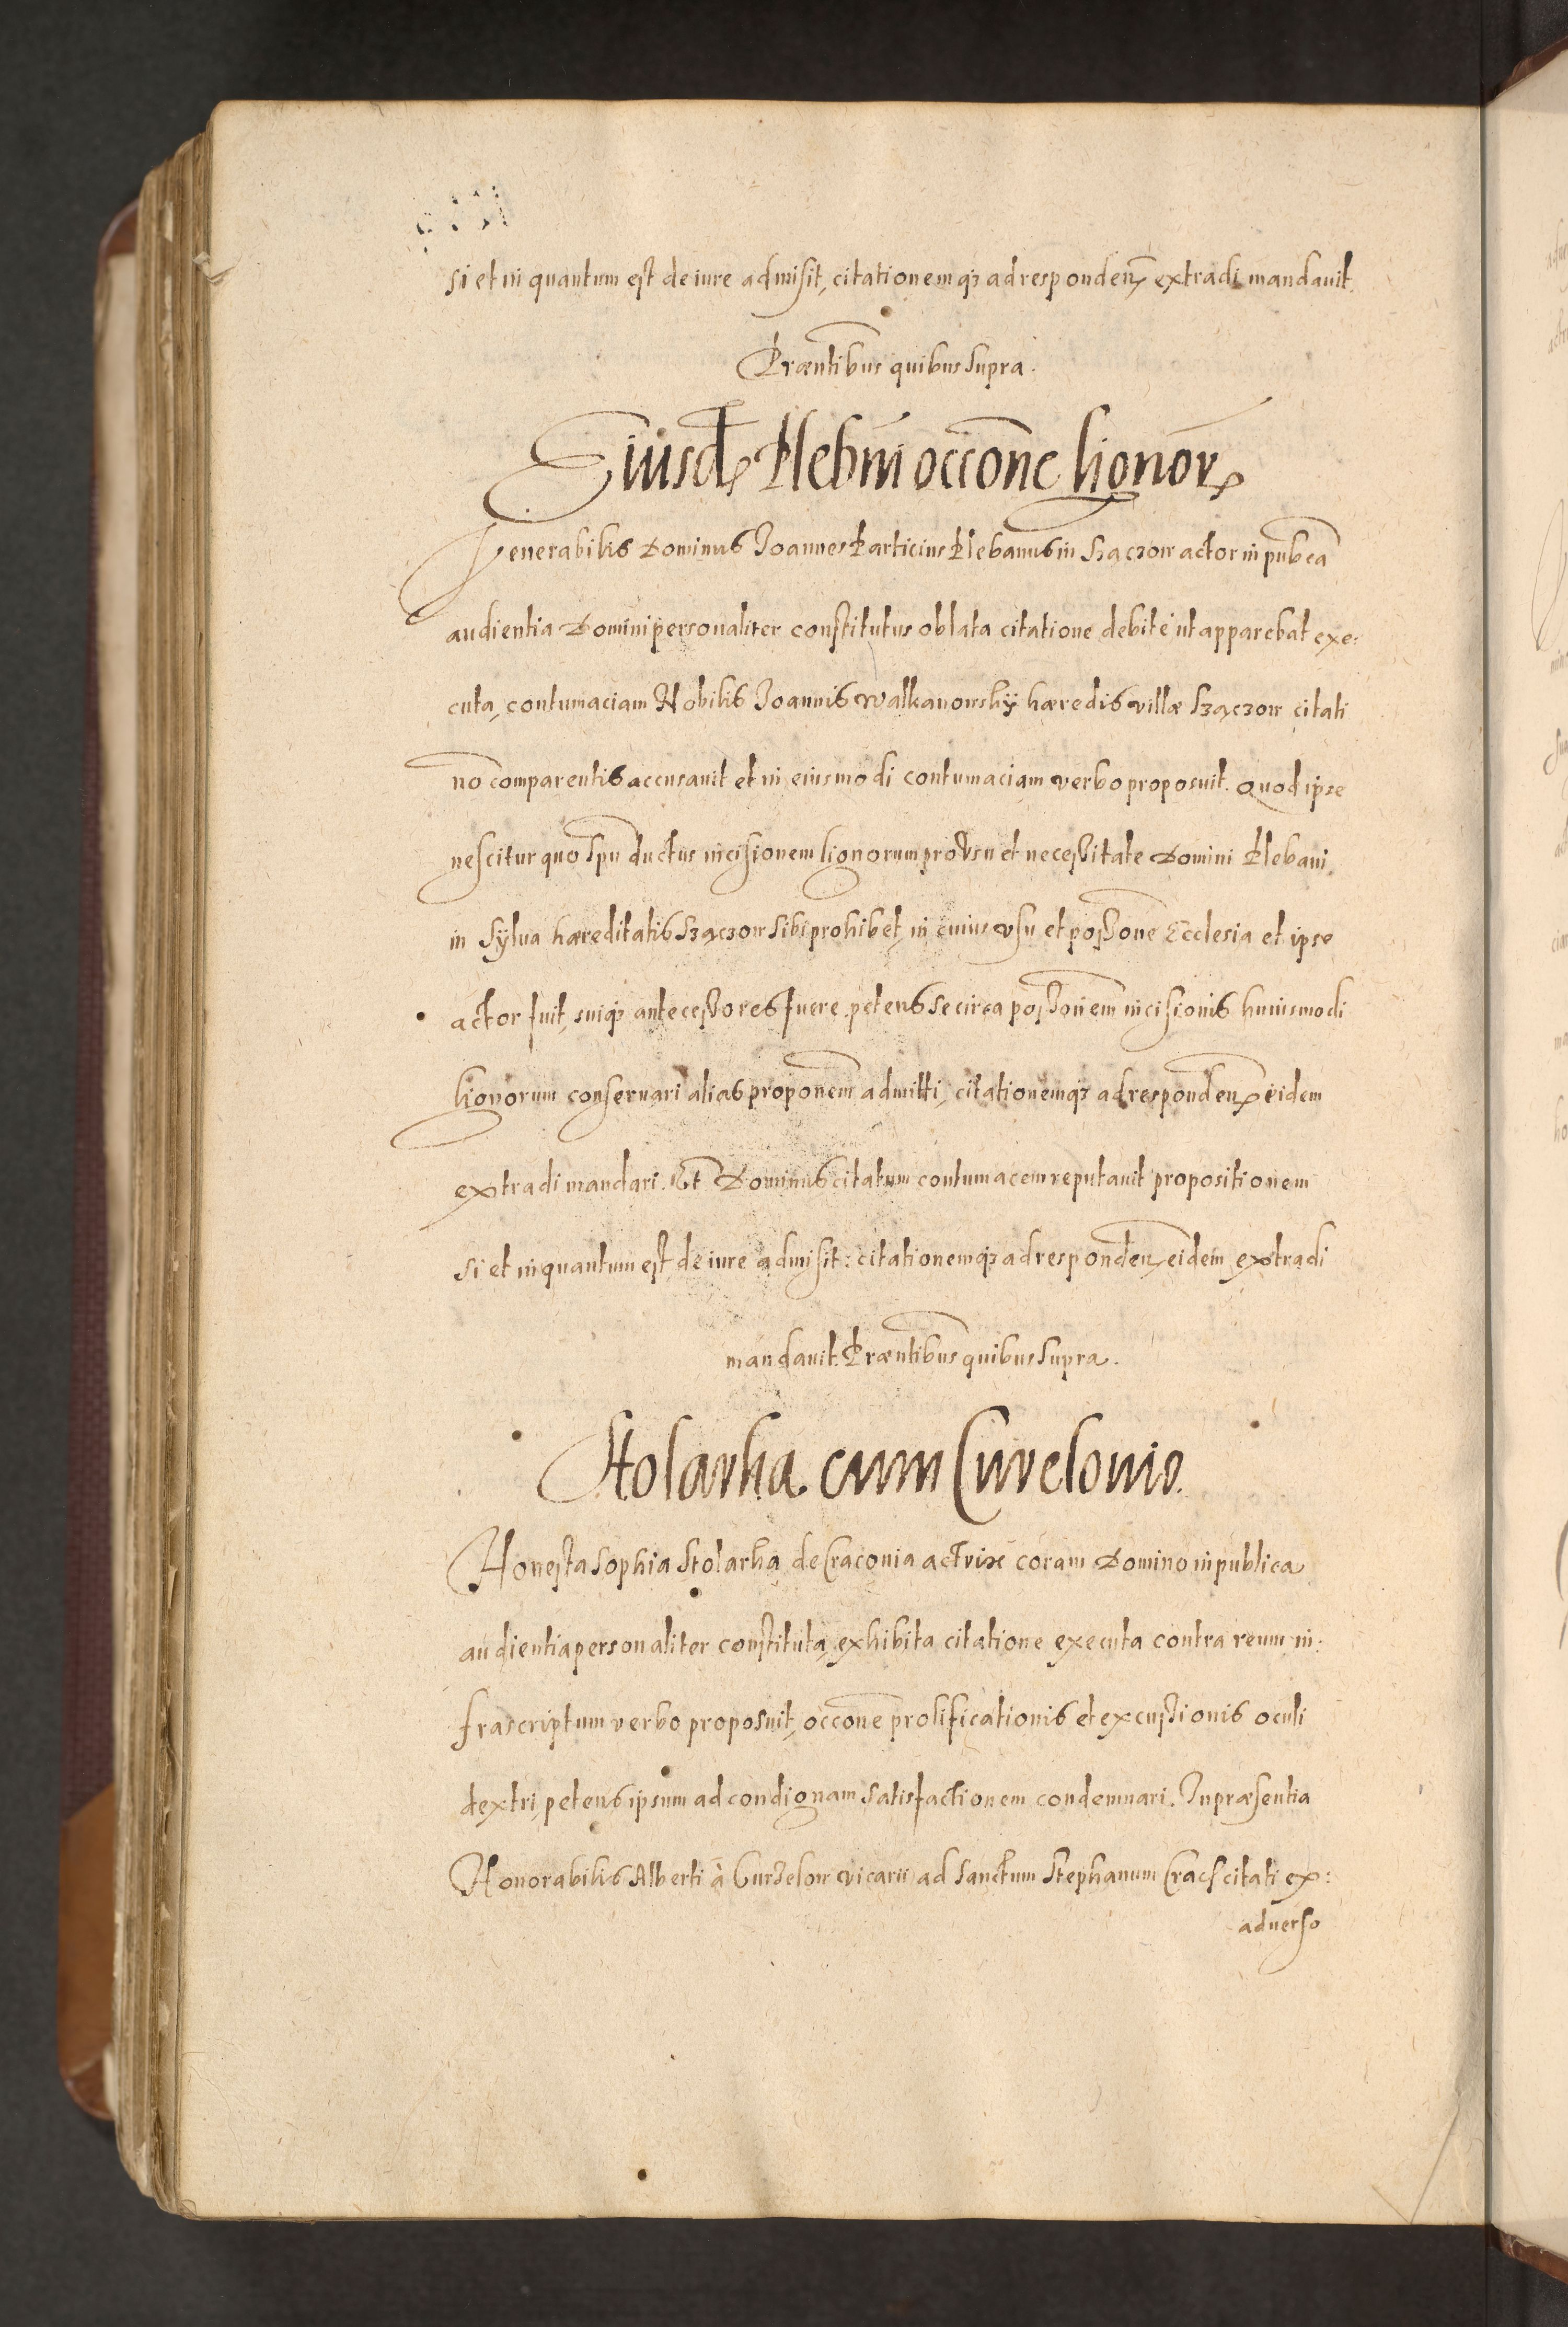 si et in quantum est de iure admisit, citationemq3 ad responden̄ extradi mandauit.
Præntibus quibus supra.
Eiusd Plebni occone lignor
Venerabilis Dominus Joannes Particius Plebanus in Szaczow actor in pubca
audientia Domini personaliter constitutus oblata citatione debite ut apparebat exe:
cuta, contumaciam Nobilis Joannis Walkanowsky hæredis villæ Szaczow citati
no comparentis accusauit et in eiusmodi contumaciam verbo proposuit. Quod ipse
nescitur quo spu ductus incisionem lignorum pro vsu et necessitate Domini Plebani
in sylua hæreditatis Szaczow sibi prohibet, in cuius vsu et possone Ecclesia et ipse
actor fuit, suiq3 antecessores fuere petens se circa possonem incisionis huiusmodi
lignorum conseruari alias proponem admitti, citationemq3 ad responden̄ eidem
extradi mandari. Et Dominus citatum contumacem reputauit propositionem
si et in quantum est de iure admisit: citationemq3 ad responden̄ eidem extradi
mandauit. Præntibus quibus supra.
Stolarka cum Curelouio.
Honesta Sophia Stolarka de Cracouia actrix coram Domino in publica
audientia personaliter constituta, exhibita citatione executa contra reum in:
frascriptum verbo proposuit, occone prolificationis et excussionis oculi
dextri, petens ipsum ad condignam satisfactionem condemnari. In præsentia
Honorabilis Alberti à Curzelow vicarii ad Sanctum Stephanum Cracs citati ex:
aduerso